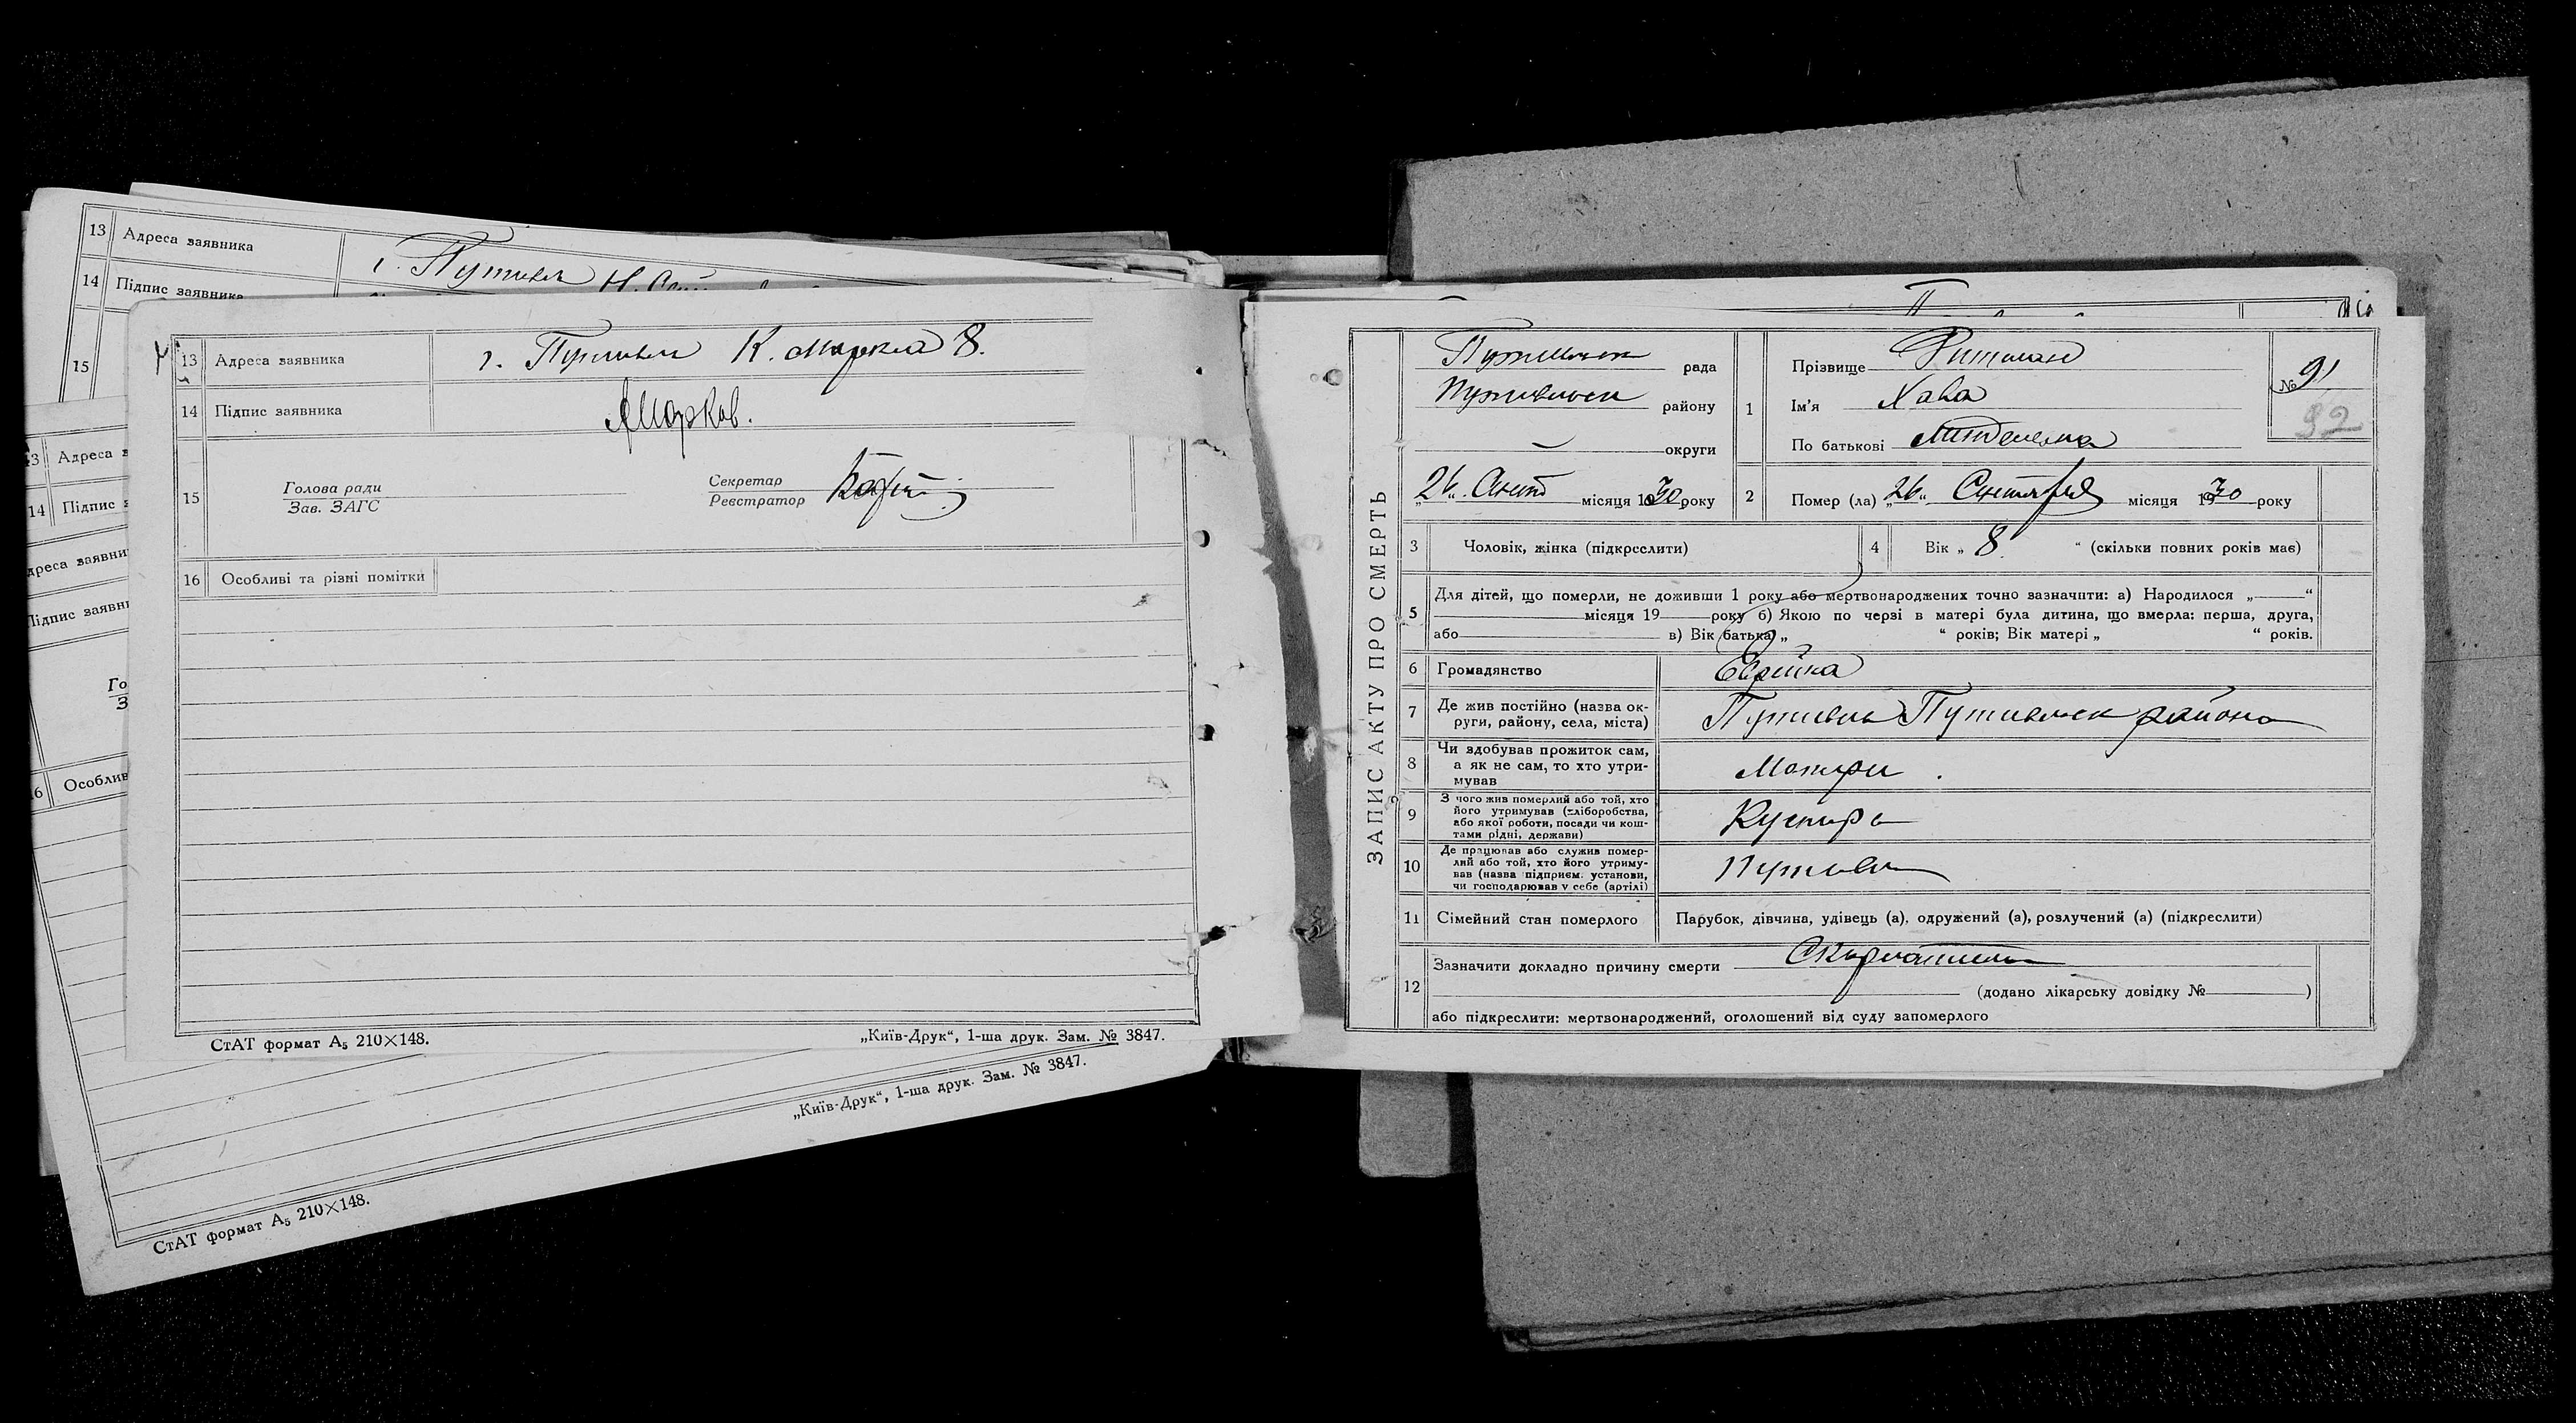 13 Адреса заявника г. Путивль Н.
14 Підпис заявника
15
13 Адреса заявника г. Путивль К. Маркса 8.
14 Підпис заявника Марков.
15 Голова ради Секретар
Зав. ЗАГС Реєстратор
16 Особливі та різні помітки
3 Адреса
14 Підпис
дреса заявни
Підпис заявн
Го
З
6 Особлив
СтАТ формат А5 210×148. „Київ-Друк“, 1-ша друк. Зам. № 3847.
„Київ-Друк“, 1-ша друк. Зам. № 3847.
СтАТ формат А5 210×148.
ЗАПИС АКТУ ПРО СМЕРТЬ
Путивльск рада
Путивльск району
округи
„26“ Сент місяця 1930 року
1 Прізвище
Ім’я Хава
По батькові
№ 91
92
2 Помер (ла) „26“ Сентября місяця 1930 року
3 Чоловік, жінка (підкреслити)
4 Вік „ 8 “ (скільки повних років має)
5 Для дітей, що померли, не доживши 1 року або мертвонароджених точно зазначити: а) Народилося „ “
місяця 19 року б) Якою по черзі в матері була дитина, що вмерла: перша, друга,
або в) Вік батька „ “ років; Вік матері „ “ років.
6 Громадянство Еврейка
7 Де жив постійно (назва ок-
руги, району, села, міста) Путивль Путивльск района
8 Чи здобував прожиток сам,
а як не сам, то хто утри-
мував Матери
9 З чого жив померлий або той, хто
його утримував (хліборобства,
або якої роботи, посади чи кош-
тами рідні, держави) Кустарь
10 Де працював або служив помер-
лий або той, хто його утриму-
вав (назва підприєм. установи,
чи господарював у себе (артілі) Путивль
11 Сімейний стан померлого Парубок, дівчина, удівець (а), одружений (а), розлучений (а) (підкреслити)
12 Зазначити докладно причину смерти Скарлатина
(додано лікарську довідку № )
або підкреслити: мертвонароджений, оголошений від суду запомерлого